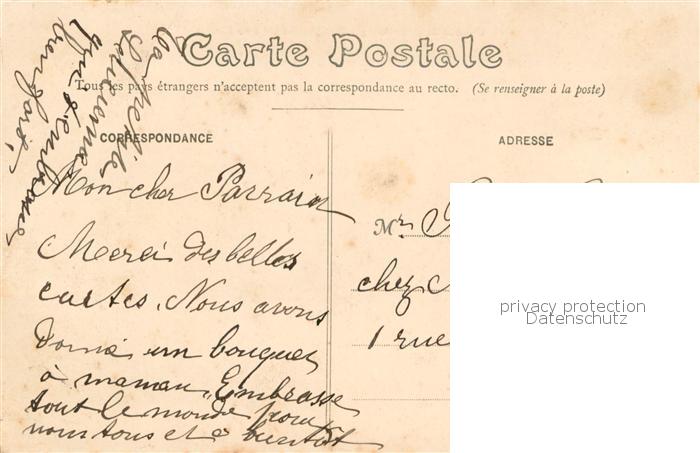 Carte Postale
Tous les pays étrangers n'acceptent pas la correspondance au recto. (Se renseigner à la poste)
CORRESPONDANCE
ADRESSE
Mon cher Parrain
Merci des belles
cartes. Nous avons
donné un bouquet
à maman. Embrasse
tout le monde pour
nous tous et à bientôt
La petite
qui t'embrasse
bien fort,
Mr.
chez
1 rue
privacy protection
Datenschutz